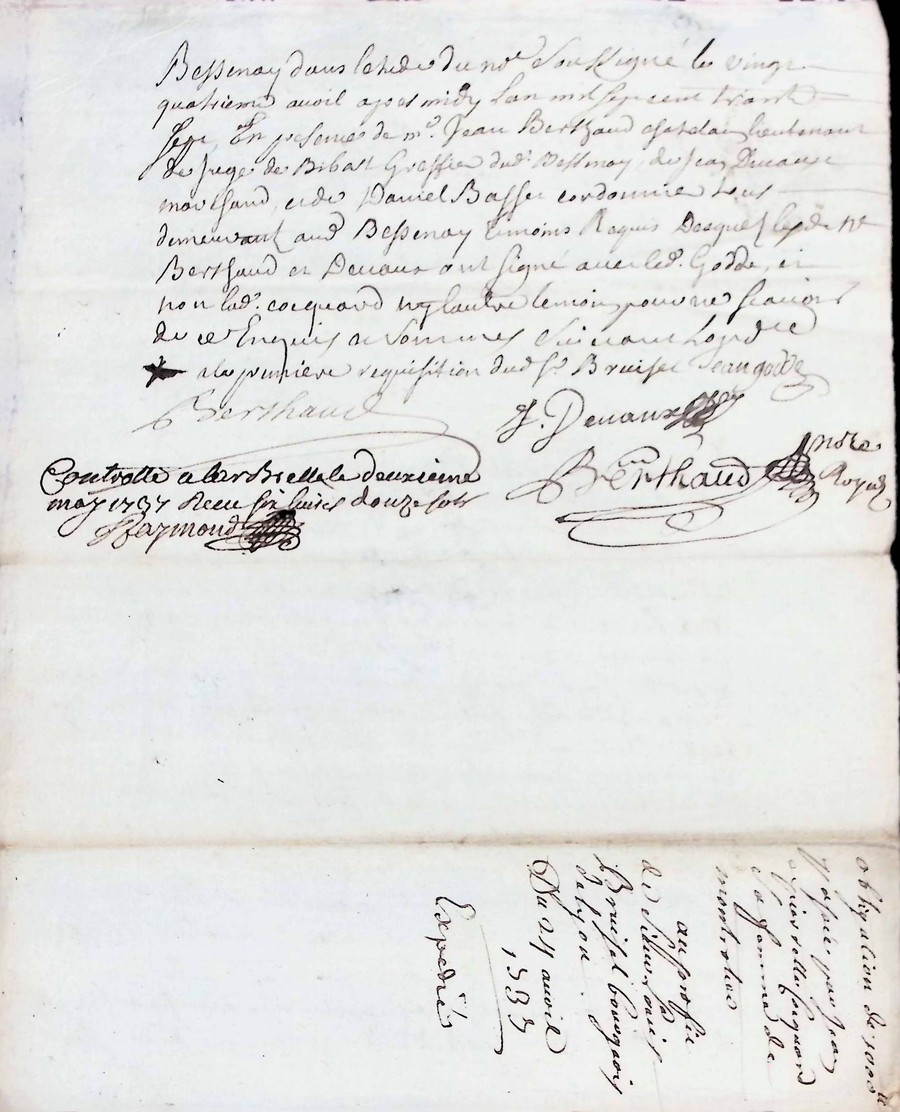 Bessenay dans letude du nore Soussigné le vingt
quatrieme avril apres midy Lan mil sept cent trante
sept, En presence de mr. Jean Berthaud chatelain lieutenant
de juge de Bibost Greffier dud. Bessenay, de Jean Devaux
marchand, et de Daniel Basset cordonnier tous
demeurant aud Bessenay temoins Requis Desquels
Berthaud et Devaux ont signé avec led. Godde, et
non lad. cocquard ny lautre temoin pour ne scavoir
de ce Enquis et Sommes Suivant Lord
a la premiere requisition dud Sr. Bruiset Jean godde
Berthaud
J. Devaux
Berthaud nore Royal
Controllé a larBrelle le deuxieme
may 1737 Receu six livres douze sols
Raymond
obligation de 1000ll
passée par Jean
et pierrette Coquard
sa femme de
montrotier
au profit
de Sieur
Bruiset bourgeois
de Lyon
Du 24 avril
1737
Expedié